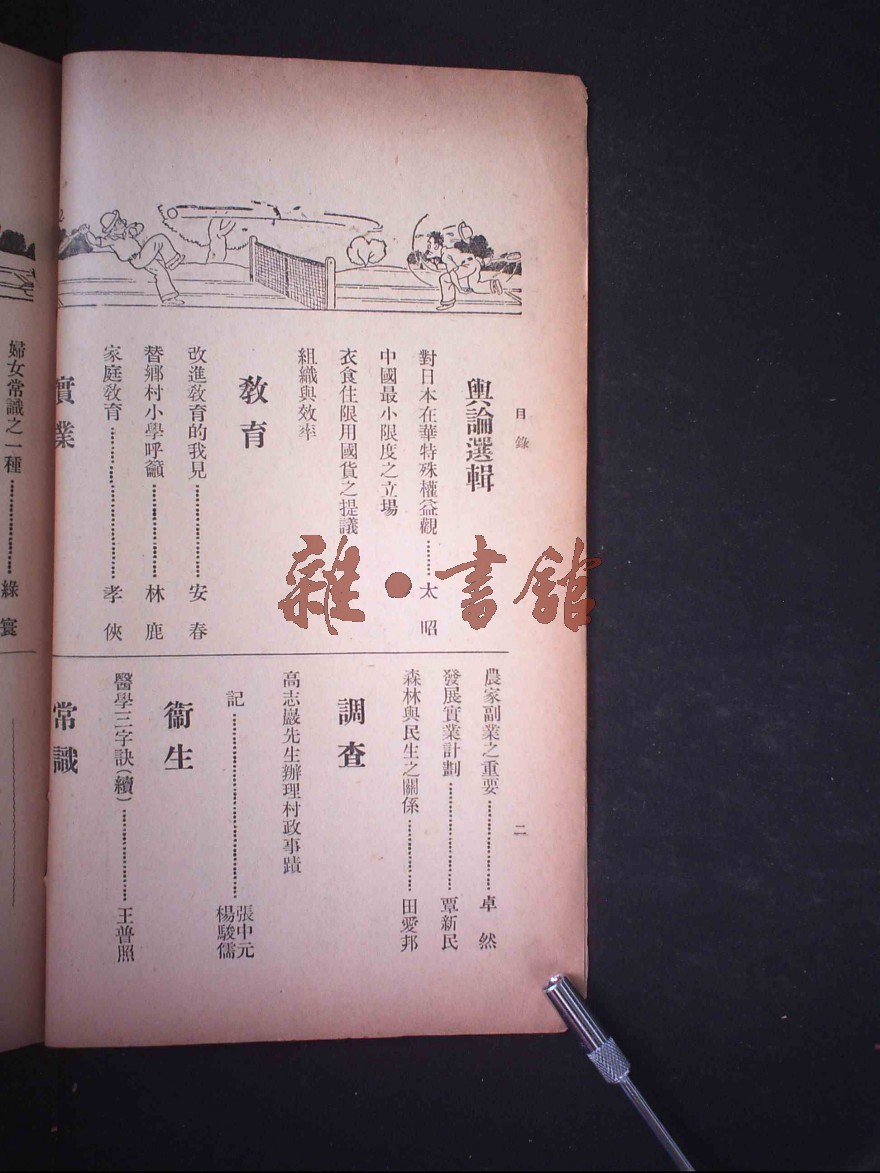 目錄
二
輿論選輯
對日本在華特殊權益觀……太昭
中國最小限度之立場
衣食住限用國貨之提議
組織與效率
教育
改進教育的我見……安春
替鄉村小學呼籲……林鹿
家庭教育……孝俠
實業
農家副業之重要……卓然
發展實業計劃……覃新民
森林與民生之關係……田愛邦
調查
高志嚴先生辦理村政事蹟
記……張中元
楊駿儒
衞生
醫學三字訣(續)……王普照
常識
婦女常識之一種……綠寰
雜·書館